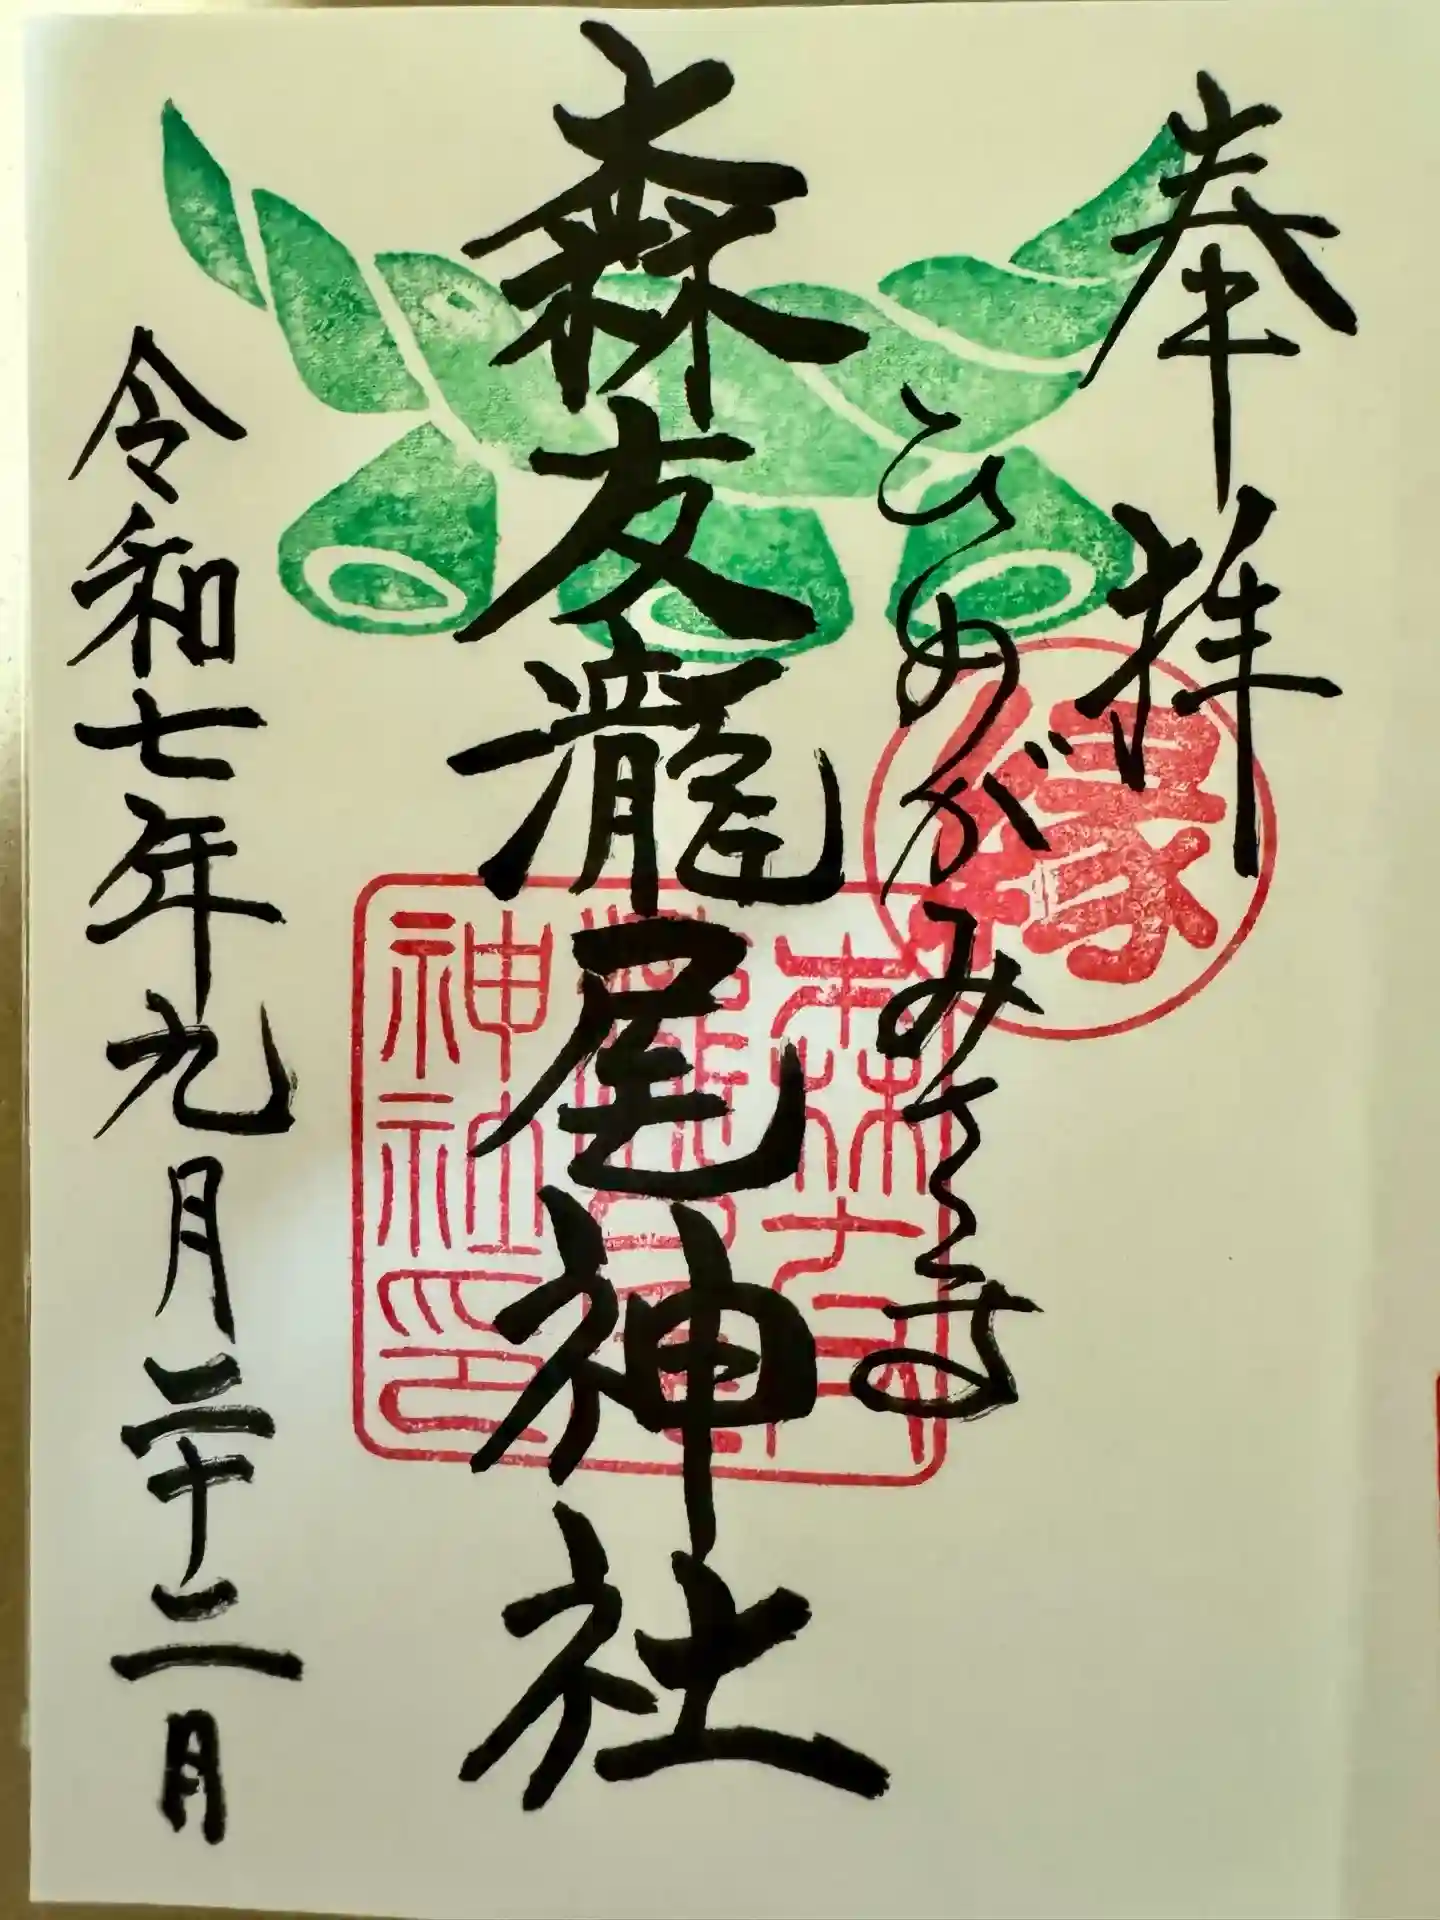 奉拝
ひめがみ
森友瀧尾神社
令和七年九月二十二日
縁
森友瀧尾神社印